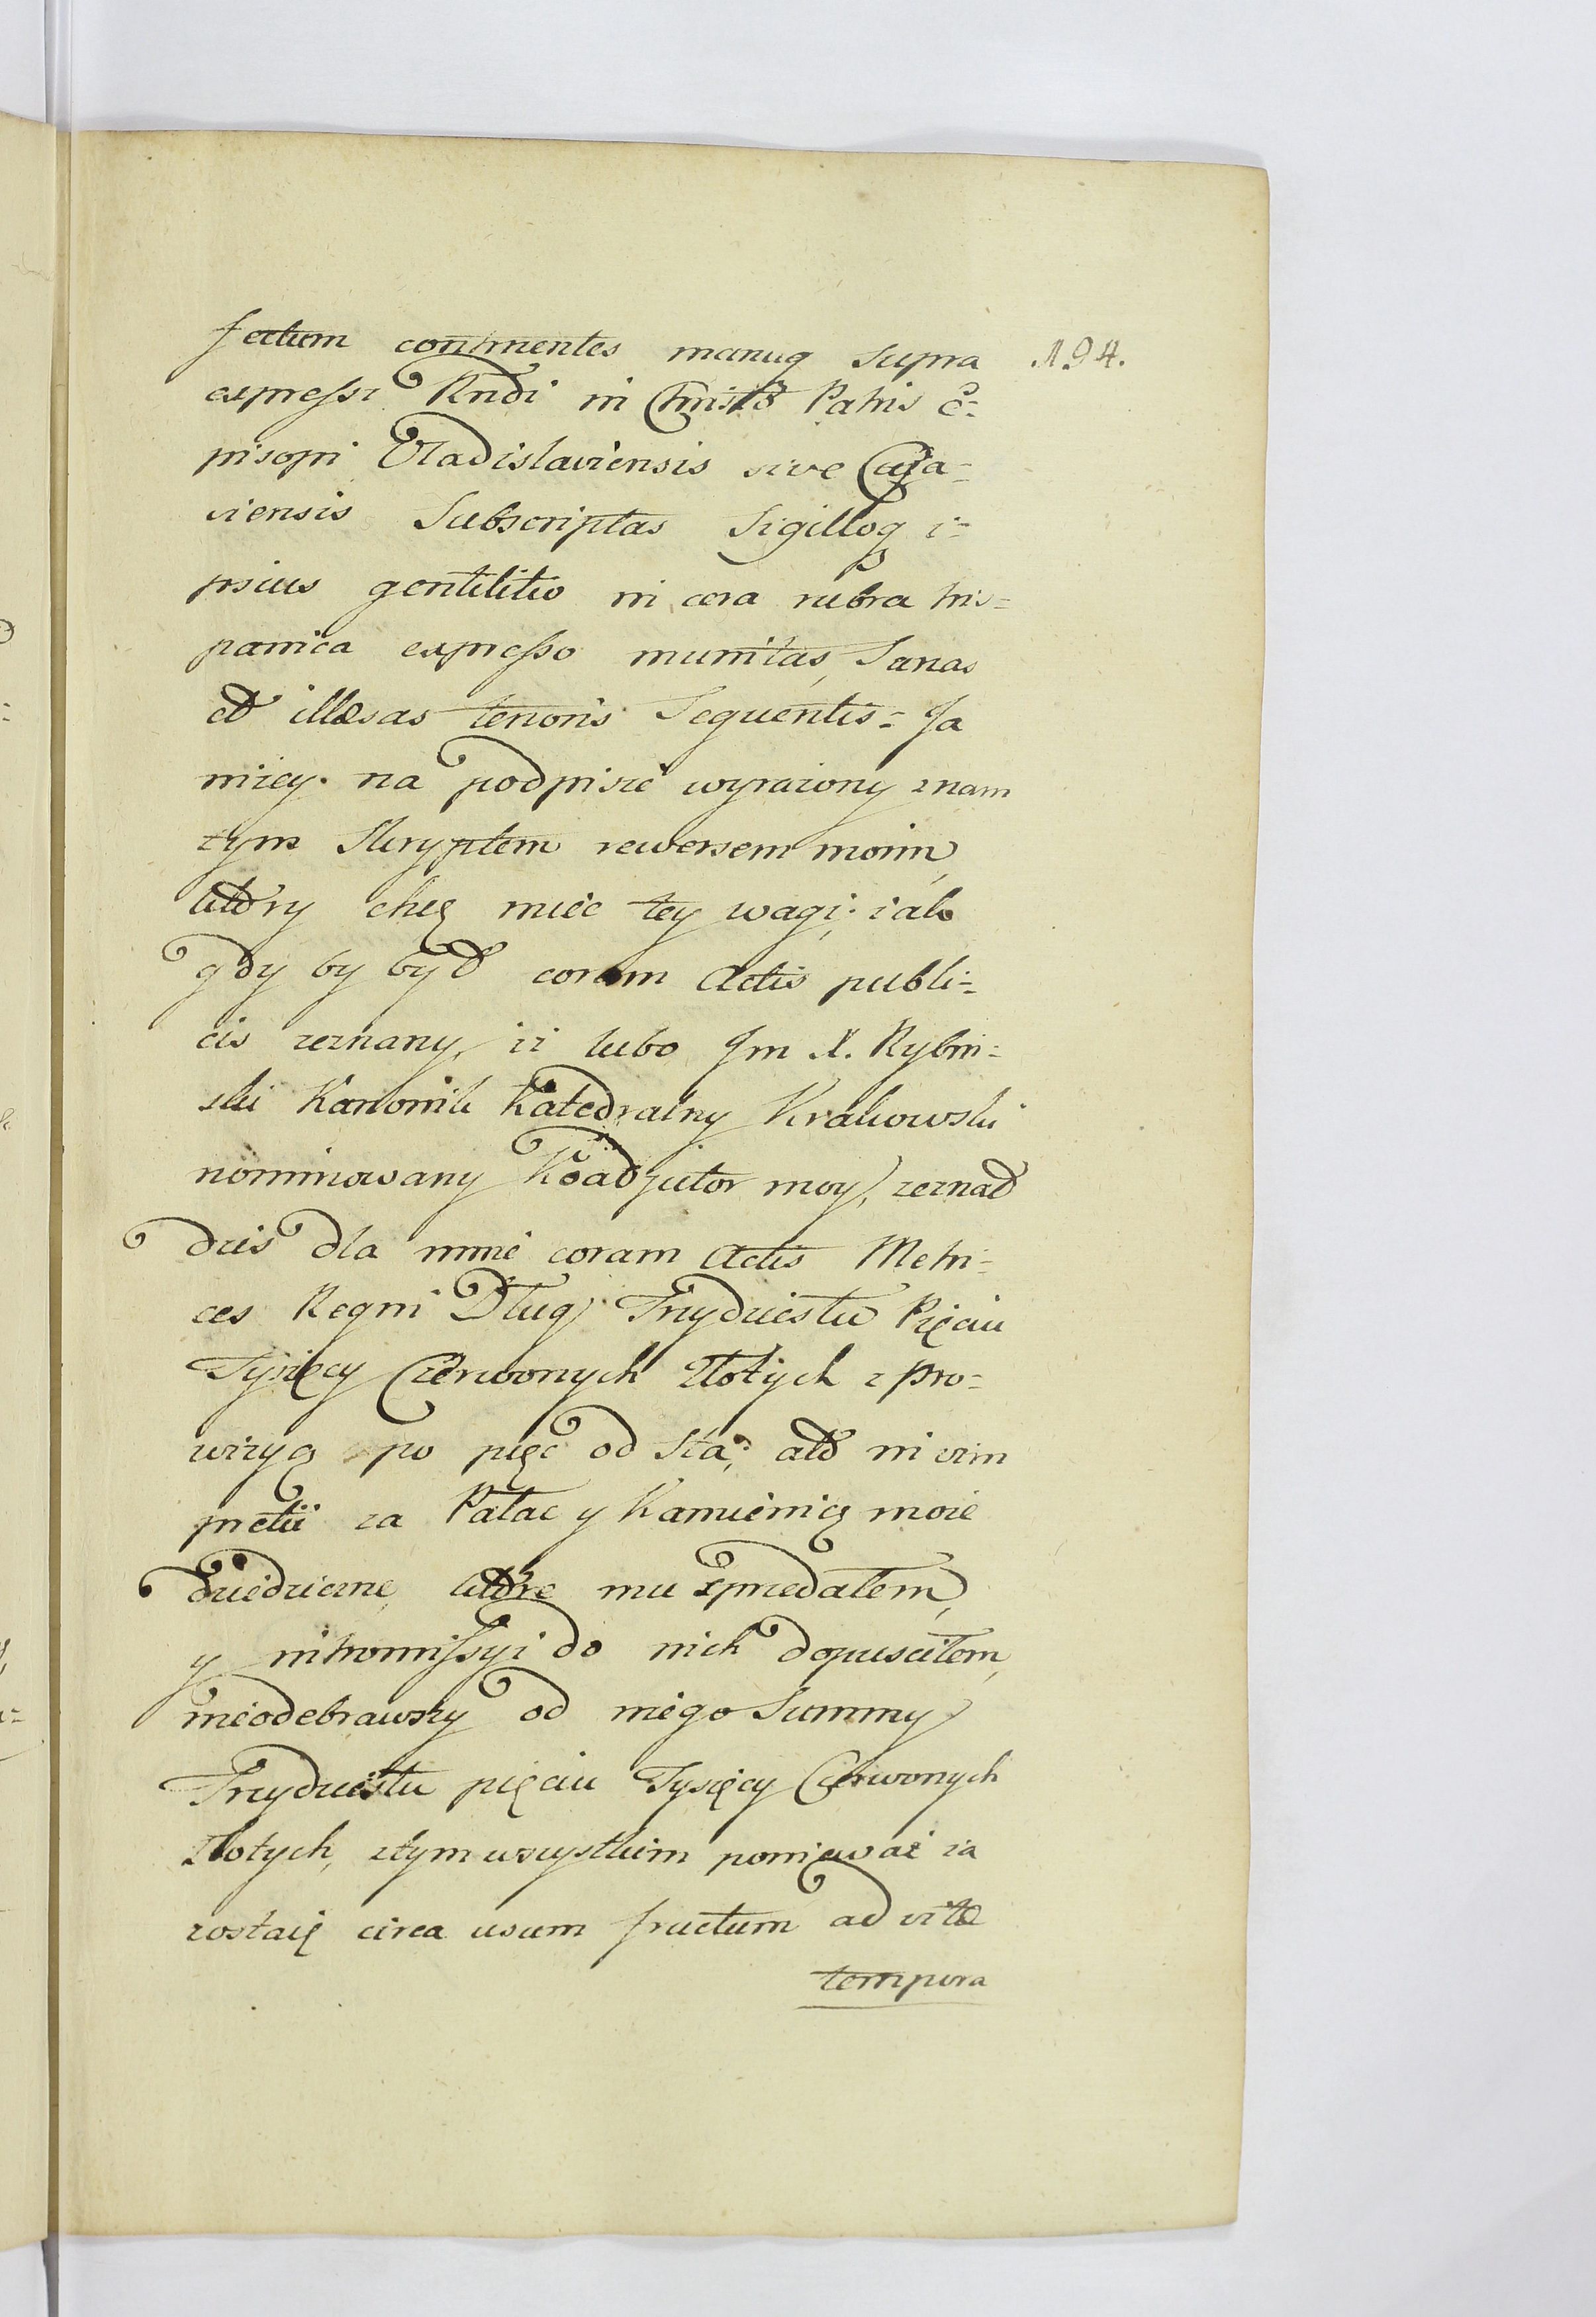 fectum continentes manuq supra 194.
expressi Rndi in Christo Patris E=
piscopi Vladislaviensis sive Cuja=
viensis Subscriptas Sigilloq i=
psius gentilitio in cera rubra his=
panica expresso munitas, Sanas
et illæsas tenoris Sequentis = Ja
niżey na podpisie wyrażony znam
tym Skryptem rewersem moim,
który chcę mieć tey wagi, iako
gdy by był coram Actis publi=
cis zeznany, iż lubo Jm X. Rybin=
ski Kanonik Katedralny Krakowski
nominowany Koadjutor moy, zeznał
dziś dla mnie coram Actis Metri=
ces Regni Dług Trzydziestu Pięciu
Tysięcy Czerwonych Złotych z pro=
wizyą po pięć od sta, ale in vim
pretii za Pałac y Kamienicę moie
dziedziczne, które mu sprzedałem,
y intromissyi do nich dopuściłem,
nieodebrawszy od niego Summy
Trzydziestu pięciu Tysięcy Czerwonych
Złotych, ztym wszystkim ponieważ ia
zostaię circa usum fructum ad vitæ
tempora